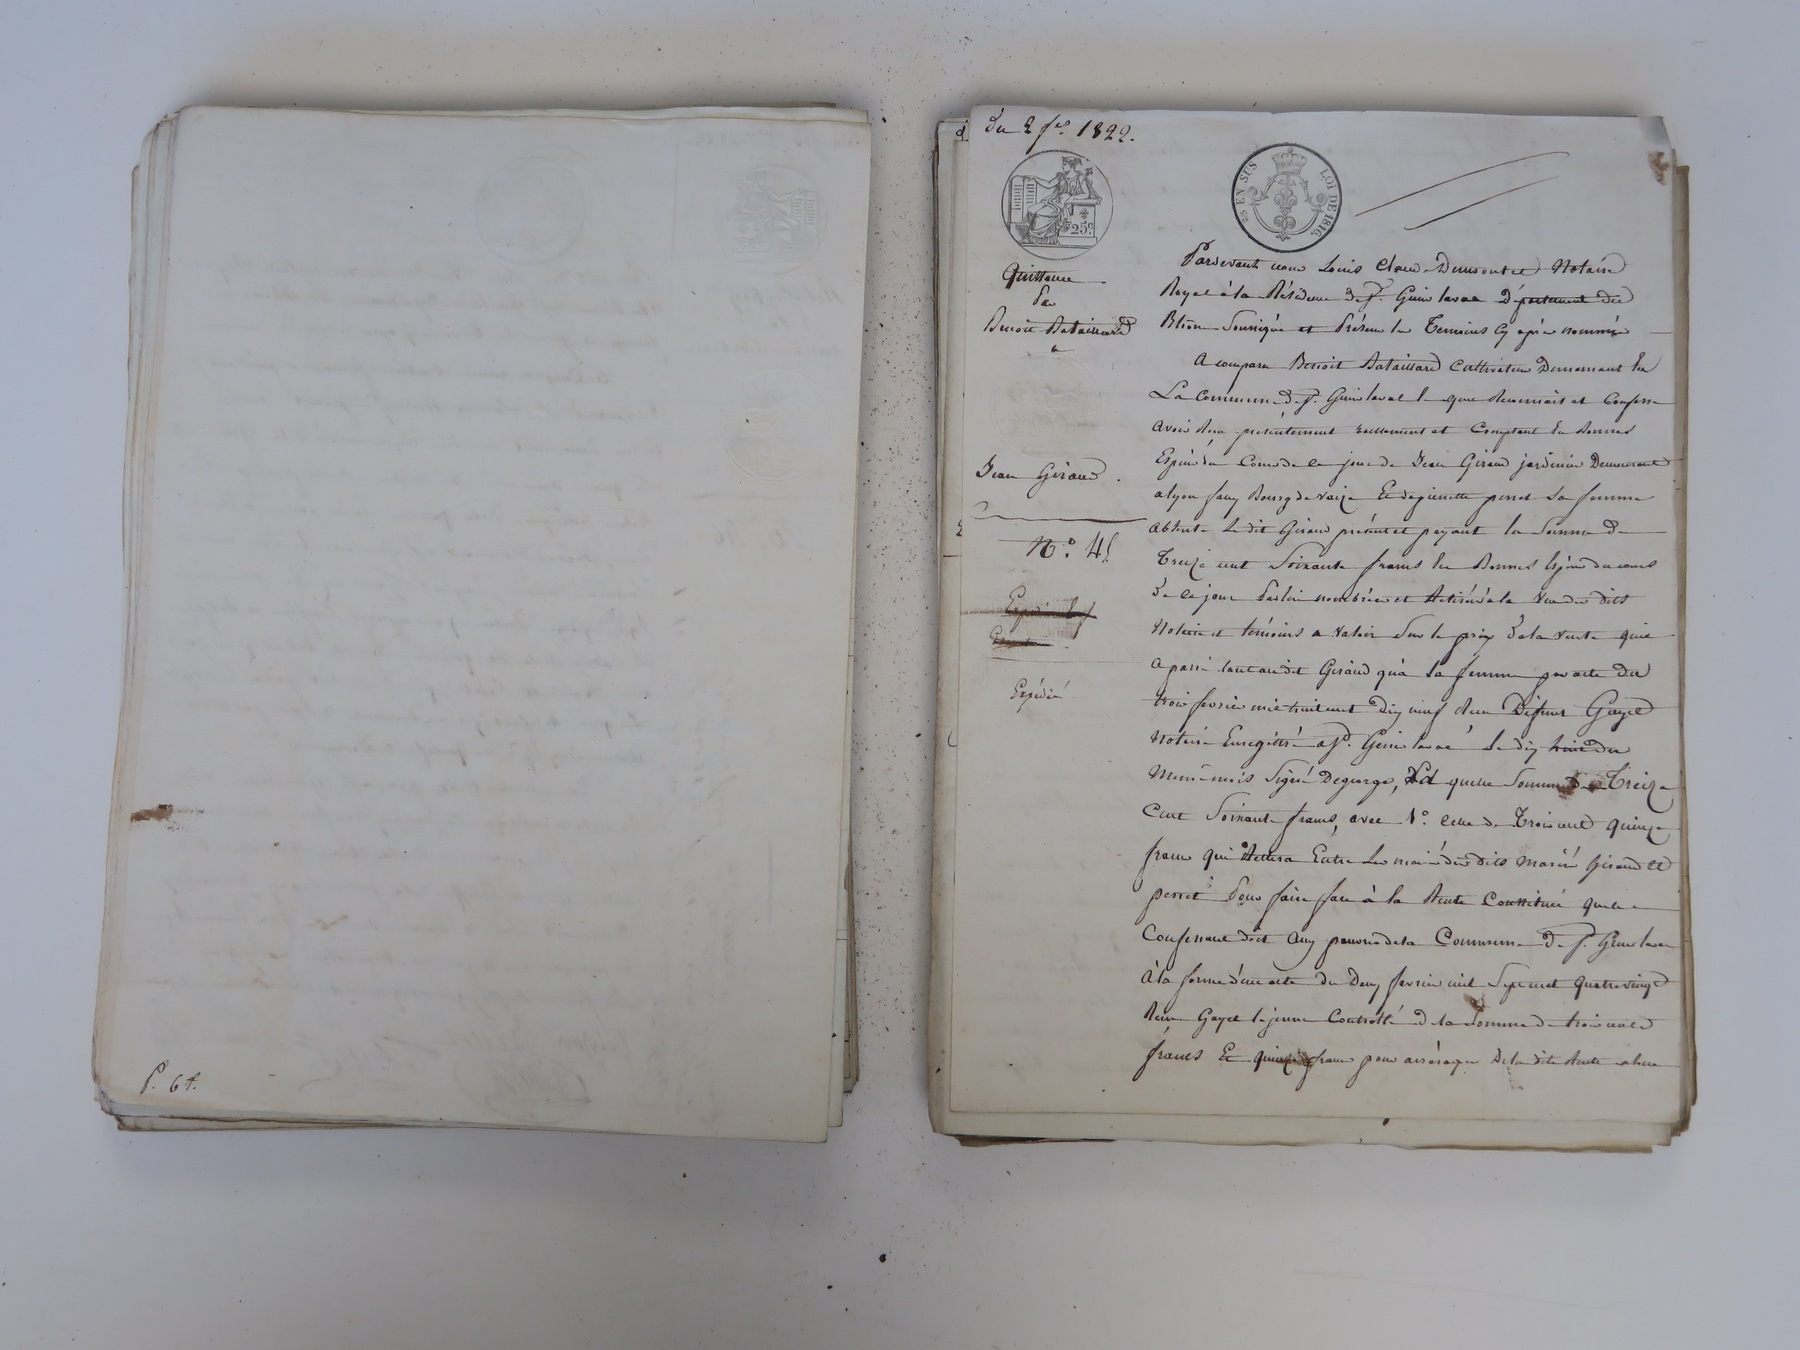 P. 64.
Du 2 fer 1822.
25 EN SUS LOI DE 1816.
25c.
Quittance
Par
Benoit Bataillard
a
Jean Giraud.
No. 45
Expédié
Pardevant nous Louis Notaire
Royal à la Résidence de St. Genis laval Département du
Rhône Soussigné et Présence les Temoins cy après nommés
A comparu Benoit Bataillard Cultivateur Demeurant en
La Commune de St. Genis laval lequel Reconnait et Confesse
avoir Reçu présentement réellement et Comptant En Bonnes
Espèces du Cours de ce jour de Jean Giraud jardinier Demeurant
a lyon faux Bourg de vaize Et de perret sa femme
absente Le dit Giraud présent et payant la Somme de
Treize cent Soixante francs En Bonnes Espèces du cours
de ce jour Par lui nombrées et Retirées à la Vue des dits
Notaire et témoins a valoir Sur le prix de la vente qui
a passé tant au dit Giraud qu'à sa femme par acte du
trois fevrier mil huit cent Dix neuf Reçu Défunt Gayet
Notaire Enregistré a St. Genis laval le dix huit du
Même mois Signé Degeorge, La quelle Somme de Treize
Cent Soixante francs, avec 1o. celle de Trois cent quinze
francs qui Restera Entre les mains des dits mariés Giraud et
perret Pour faire face à la Rente Constituée que le
Confessant doit aux pauvres de la Commune De St. Genis laval
à la forme d'un acte du Deux fevrier mil Sept cent quatre vingt
Reçu Gayet le jeune Controllé de la Somme de trois cent
francs Et quinze francs pour arrérages De la dite Rente